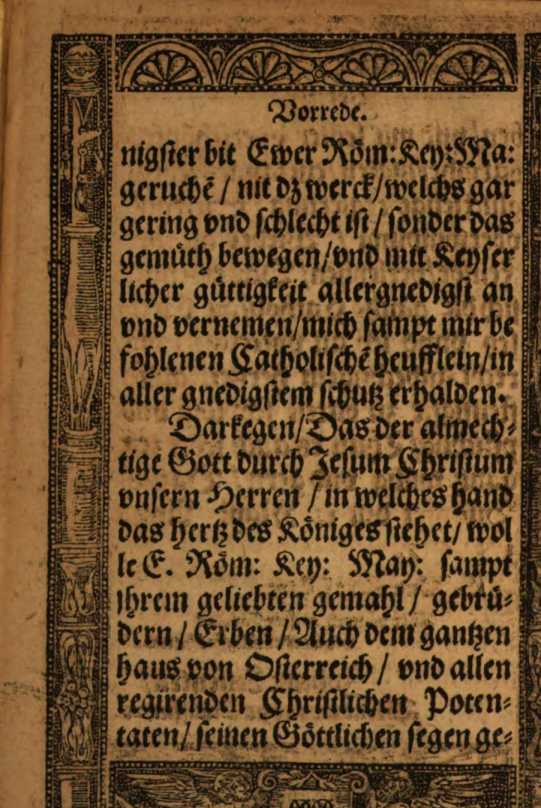 Vorrede.
nigster bit Ewer Röm:Key:Ma:
geruchē / nit dz werck/welchs gar
gering vnd schlecht ist / sonder das
gemüth bewegen/vnd mit Keyser
licher güttigkeit allergnedigst an
vnd vernemen/mich sampt mir be
fohlenen Catholischē heufflein/in
aller gnedigstem schutz erhalden.
Darkegen/Das der almech⸗
tige Gott durch Jesum Christum
vnsern Herren / in welches hand
das hertz des Königes stehet/ wol
le E. Röm: Key: May: sampt
jhrem geliebten gemahl / gebrü⸗
dern / Erben / Auch dem gantzen
haus von Osterreich / vnd allen
regirenden Christlichen Poten⸗
taten/ seinen Göttlichen segen ge⸗